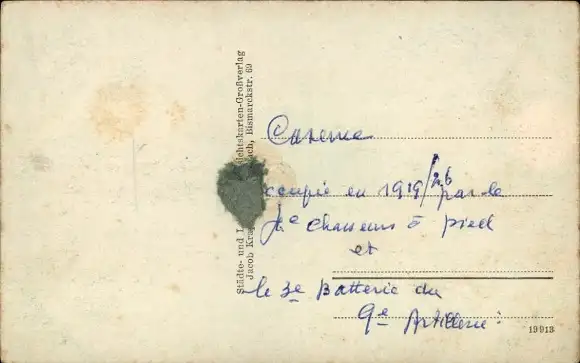 Städte- und L ichtskarten-Großverlag
Jacob Kra ch, Bismarckstr. 69
Caserne
ccupée en 1919/26 par le
chasseurs à pied
et
le 3e Batterie du
9e Artillerie
19913